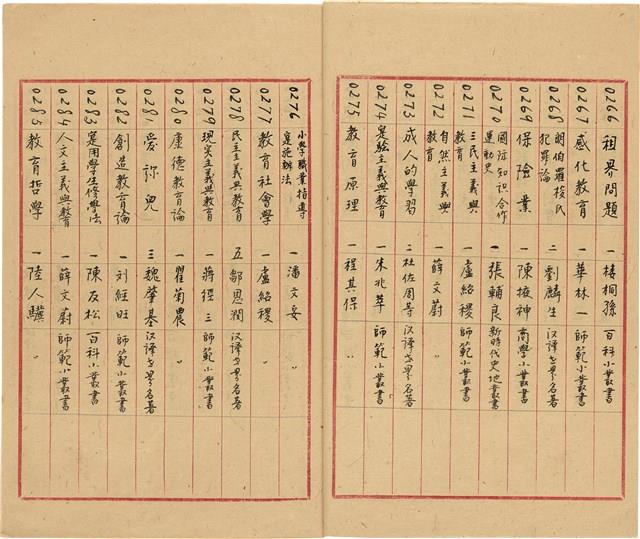 0266 租界問題 一 樓桐孫 百科小叢書
0267 感化教育 一 華林一 師範小叢書
0268 朗伯羅梭氏犯罪論 二 劉麟生 汉譯世界名著
0269 保險業 一 陳掖神 商學小叢書
0270 國际知识合作運動史 一 張輔良 新時代史地叢書
0271 三民主義與教育 一 盧紹稷 師範小叢書
0272 自然主義與教育 一 薛文蔚 〃
0273 成人的學習 二 杜佐周等 汉譯世界名著
0274 实驗主義與教育 一 朱兆萃 師範小叢書
0275 教育原理 一 程其保 〃
0276 小學職業指導实施辦法 一 潘文安 〃
0277 教育社會學 一 盧紹稷 〃
0278 民主主義與教育 五 鄒恩潤 汉譯世界名著
0279 現实主義與教育 一 蔣徑三 師範小叢書
0280 康德教育論 一 瞿菊農 〃
0281 愛弥兒 三 魏肇基 汉譯世界名著
0282 創造教育論 一 刘經旺 師範小叢書
0283 实用學生修學法 一 陳友松 百科小叢書
0284 人文主義與教育 一 薛文蔚 師範小叢書
0285 教育哲學 一 陸人驥 〃